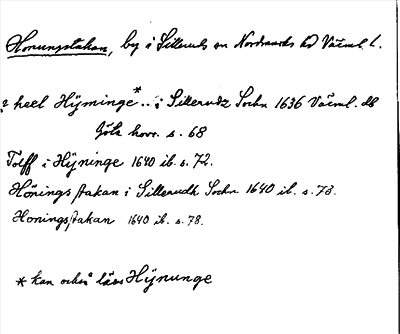 Honungstakan, by i Sillerud sn Nordmarks hd Värml. l.
? heel Hÿminge*.. i Sillerudz Sochn 1636 Värml. db
Göta hovr. s. 68
Tolff i Hÿninge 1640 ib. s. 72.
Hönings stakan i Sillerudh Sochn 1640 ib. s. 73.
Honingsstakan 1640 ib. s. 78.
* kan också läsas Hÿnunge